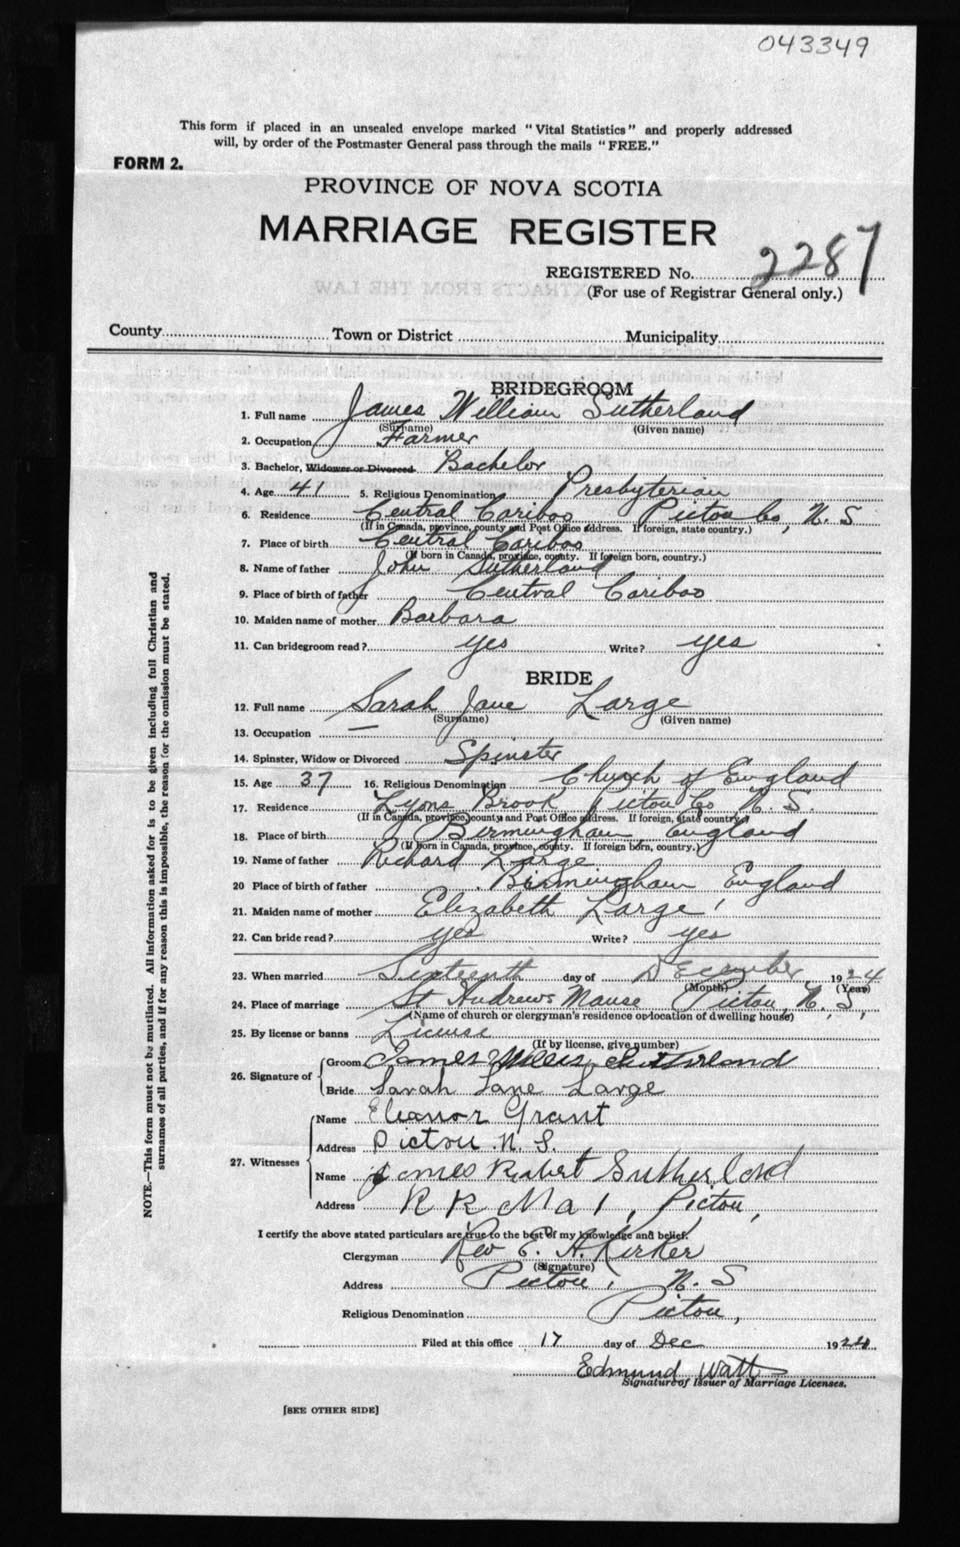 043349
This form if placed in an unsealed envelope marked "Vital Statistics" and properly addressed
will, by order of the Postmaster General pass through the mails "FREE."
FORM 2.
PROVINCE OF NOVA SCOTIA
MARRIAGE REGISTER
REGISTERED No. 2287
(For use of Registrar General only.)
County Town or District Municipality
BRIDEGROOM
1. Full name James William Sutherland
(Surname) (Given name)
2. Occupation Farmer
3. Bachelor, Widower or Divorced Bachelor
4. Age 41 5. Religious Denomination Presbyterian
6. Residence Central Cariboo Pictou Co, N. S
(If in Canada, province, county and Post Office address. If foreign, state country.)
7. Place of birth Central Cariboo
(If born in Canada, province, county. If foreign born, country.)
8. Name of father John Sutherland
9. Place of birth of father Central Cariboo
10. Maiden name of mother Barbara
11. Can bridegroom read? yes Write? yes
BRIDE
12. Full name Sarah Jane Large
(Surname) (Given name)
13. Occupation —
14. Spinster, Widow or Divorced Spinster
15. Age 37 16. Religious Denomination Church of England
17. Residence Lyons Brook Pictou Co N. S
(If in Canada, province, county and Post Office address. If foreign, state country.)
18. Place of birth Birmingham, England
(If born in Canada, province, county. If foreign born, country.)
19. Name of father Richard Large
20 Place of birth of father Birmingham England
21. Maiden name of mother Elizabeth Large
22. Can bride read? yes Write? yes
23. When married Sixteenth day of December, 1924
(Month) (Year)
24. Place of marriage St Andrews Manse Pictou, N. S,
(Name of church or clergyman's residence or location of dwelling house)
25. By license or banns License
(If by license, give number)
26. Signature of Groom James Sutherland
Bride Sarah Jane Large
27. Witnesses Name Eleanor Grant
Address Pictou N. S.
Name James Robert Sutherland
Address R R No 1, Pictou,
I certify the above stated particulars are true to the best of my knowledge and belief.
Clergyman Rev E. A. Kirker
(Signature)
Address Pictou, N. S
Religious Denomination Pictou,
Filed at this office 17 day of Dec 1924
Edmund Watt
Signature of Issuer of Marriage Licenses.
[SEE OTHER SIDE]
NOTE.—This form must not be mutilated. All information asked for is to be given including full Christian and
surnames of all parties, and if for any reason this is impossible, the reason for the omission must be stated.